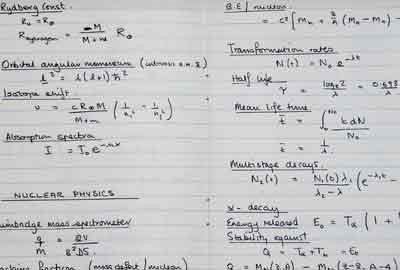 Rydberg Const.
R∞ = R∞
R_hydrogen = M / (M + m) R∞
Orbital angular momentum
l² = l(l+1)ħ²
Isotope shift
υ = cR∞M / (M+m) (1/n₁² − 1/n₂²)
Absorption spectra
I = I₀e^(-μx)
NUCLEAR PHYSICS
Bainbridge mass spectrometer
q/M = 2V / B²DS
fraction (mass defect / nucleon)
B.E / nucleon
= c² [Mₙ + Z/A (M_H − Mₙ) −
Transformation rates
N(t) = N₀ e^(-λt)
Half life
τ = log_e 2 / λ = 0.693 / λ
Mean life time
t̄ = ∫₀^(N₀) t dN / N₀
t̄ = 1/λ
Multistage decays.
N₂(t) = N₁(0) λ₁ / (λ₂ − λ₁) (e^(-λ₁t) −
α - decay
Energy released E₀ = Tα (1 +
Stability against
Q = Tα + T_b = E₀
Q = M_N(Z,A) − M_N(Z-2, A-4)